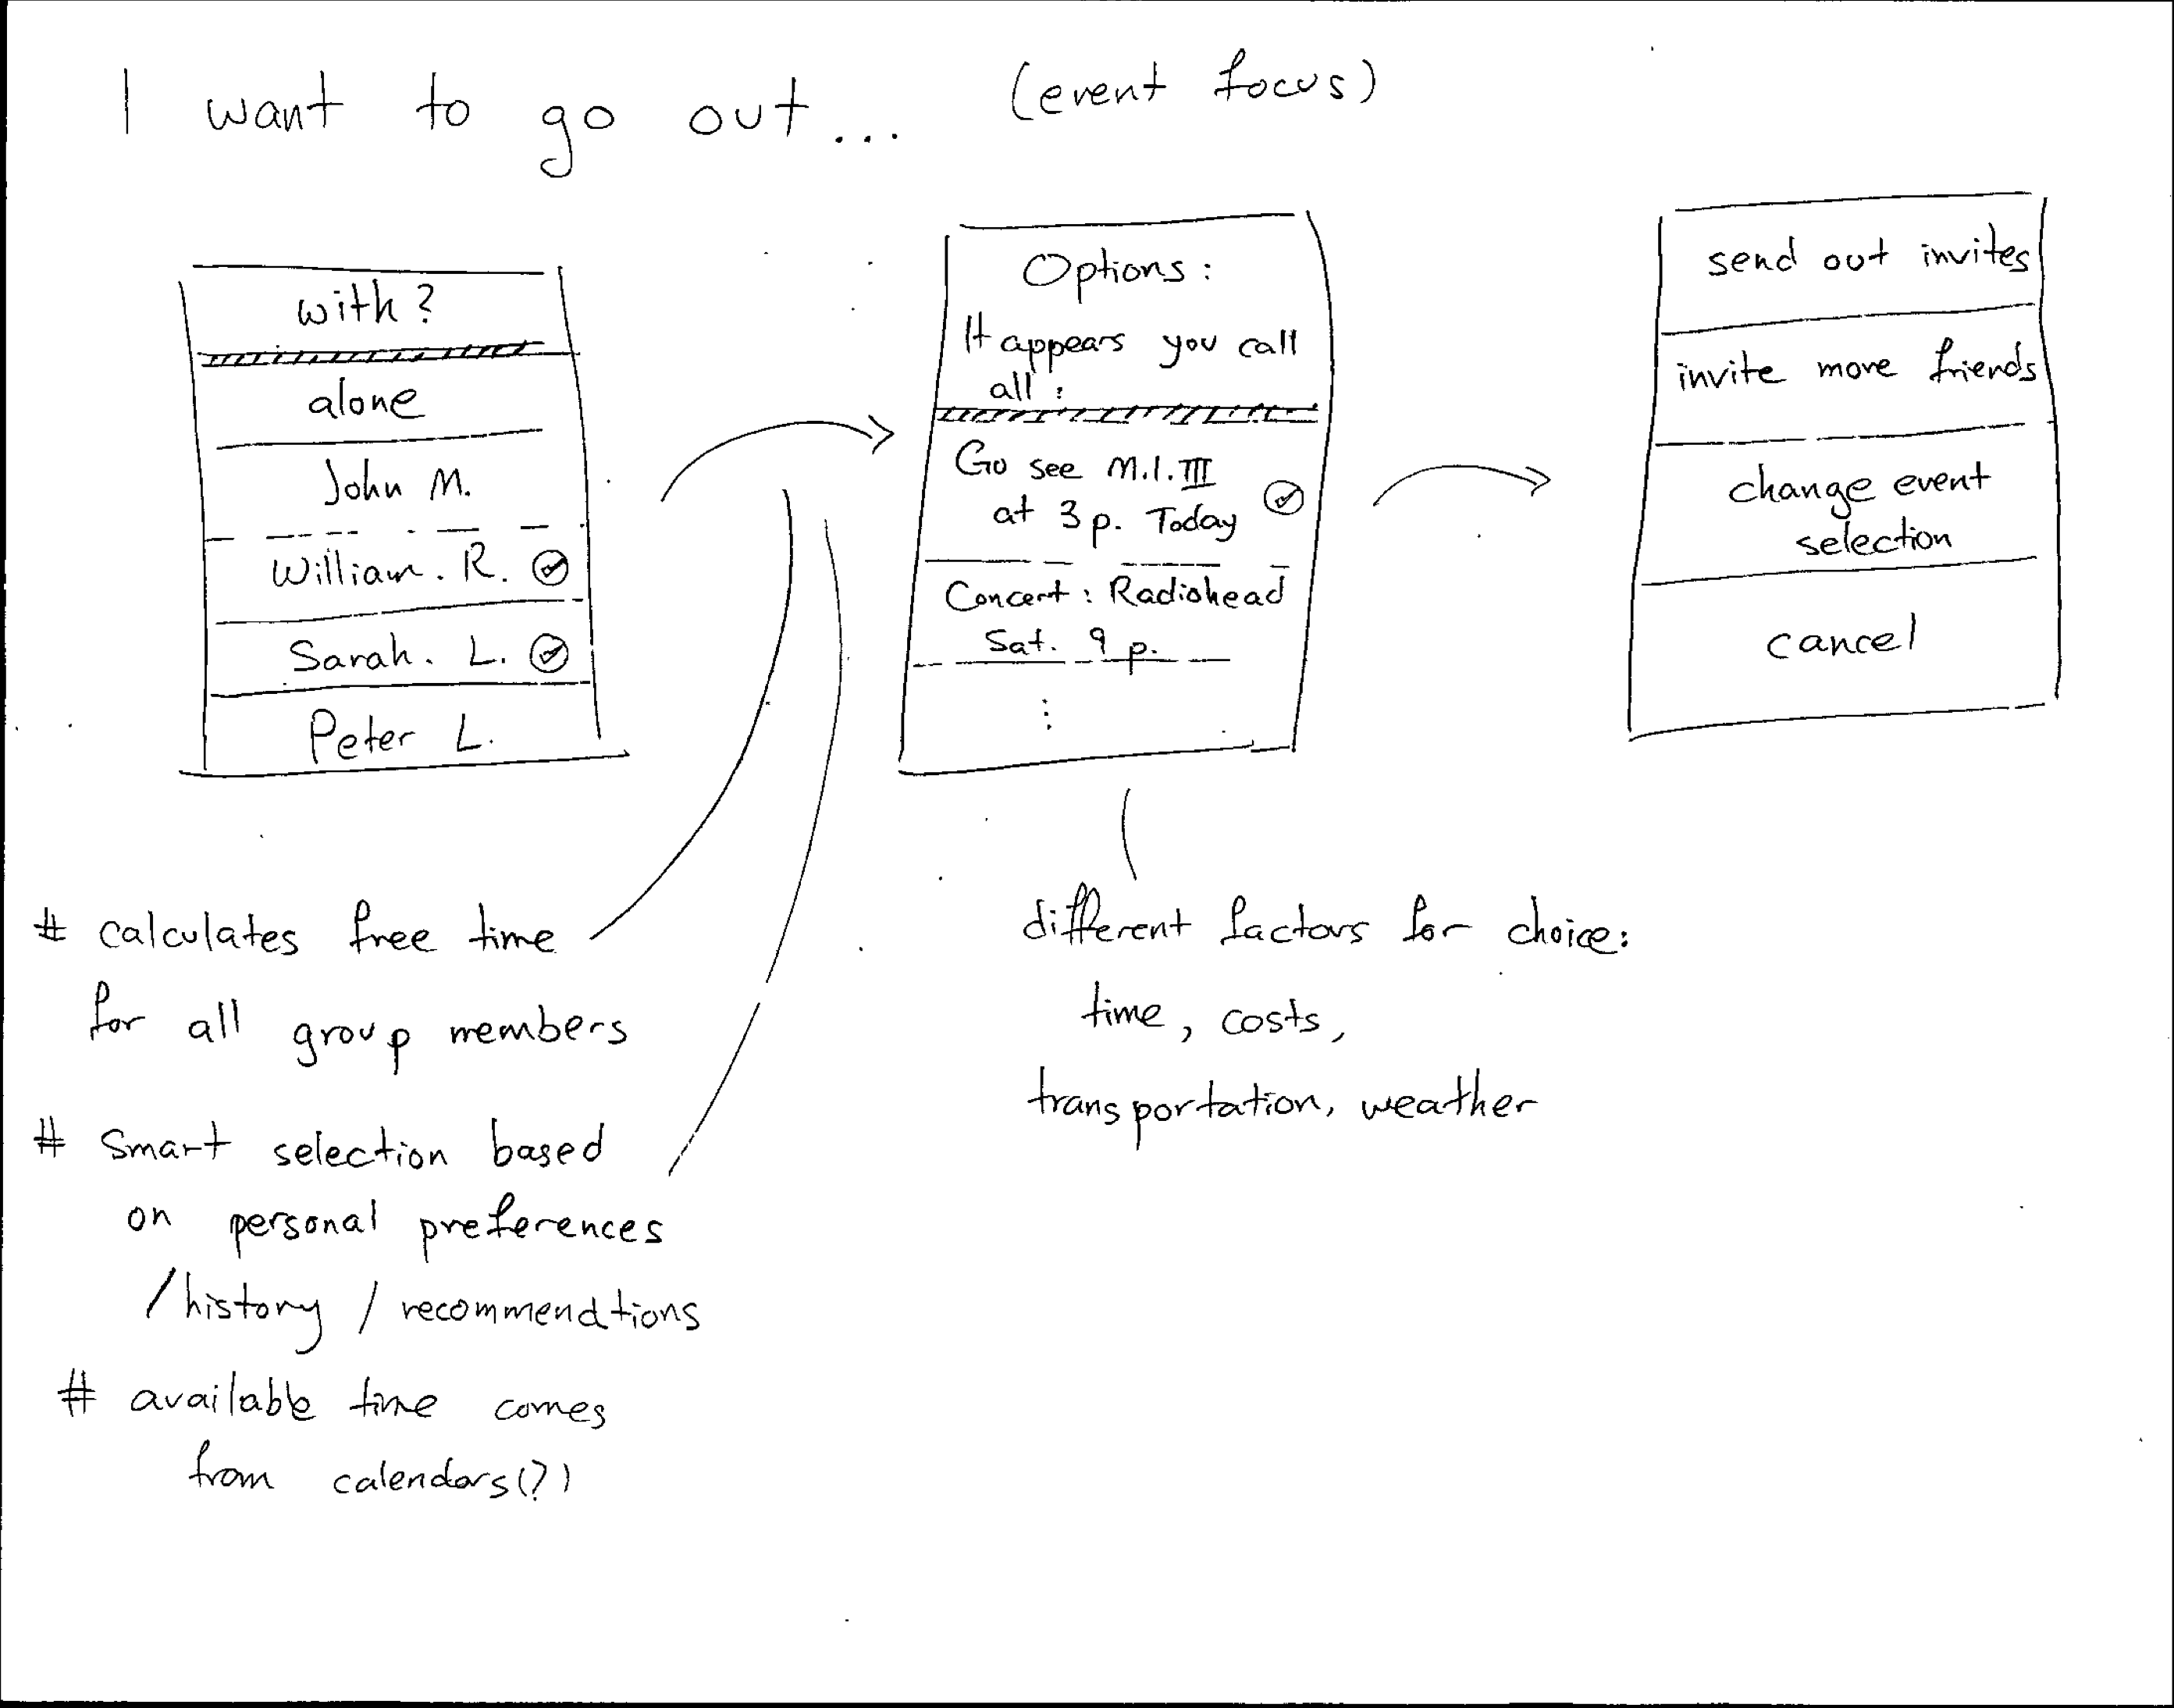 I want to go out... (event focus)
with?
alone
John M.
William. R.
Sarah. L.
Peter L.
Options:
It appears you call
all:
Go see M.I.III
at 3p. Today
Concert: Radiohead
Sat. 9 p.
send out invites
invite more friends
change event
selection
cancel
# calculates free time
for all group members
# smart selection based
on personal preferences
/history / recommendtions
# available time comes
from calendars(?)
different factors for choice:
time, costs,
transportation, weather